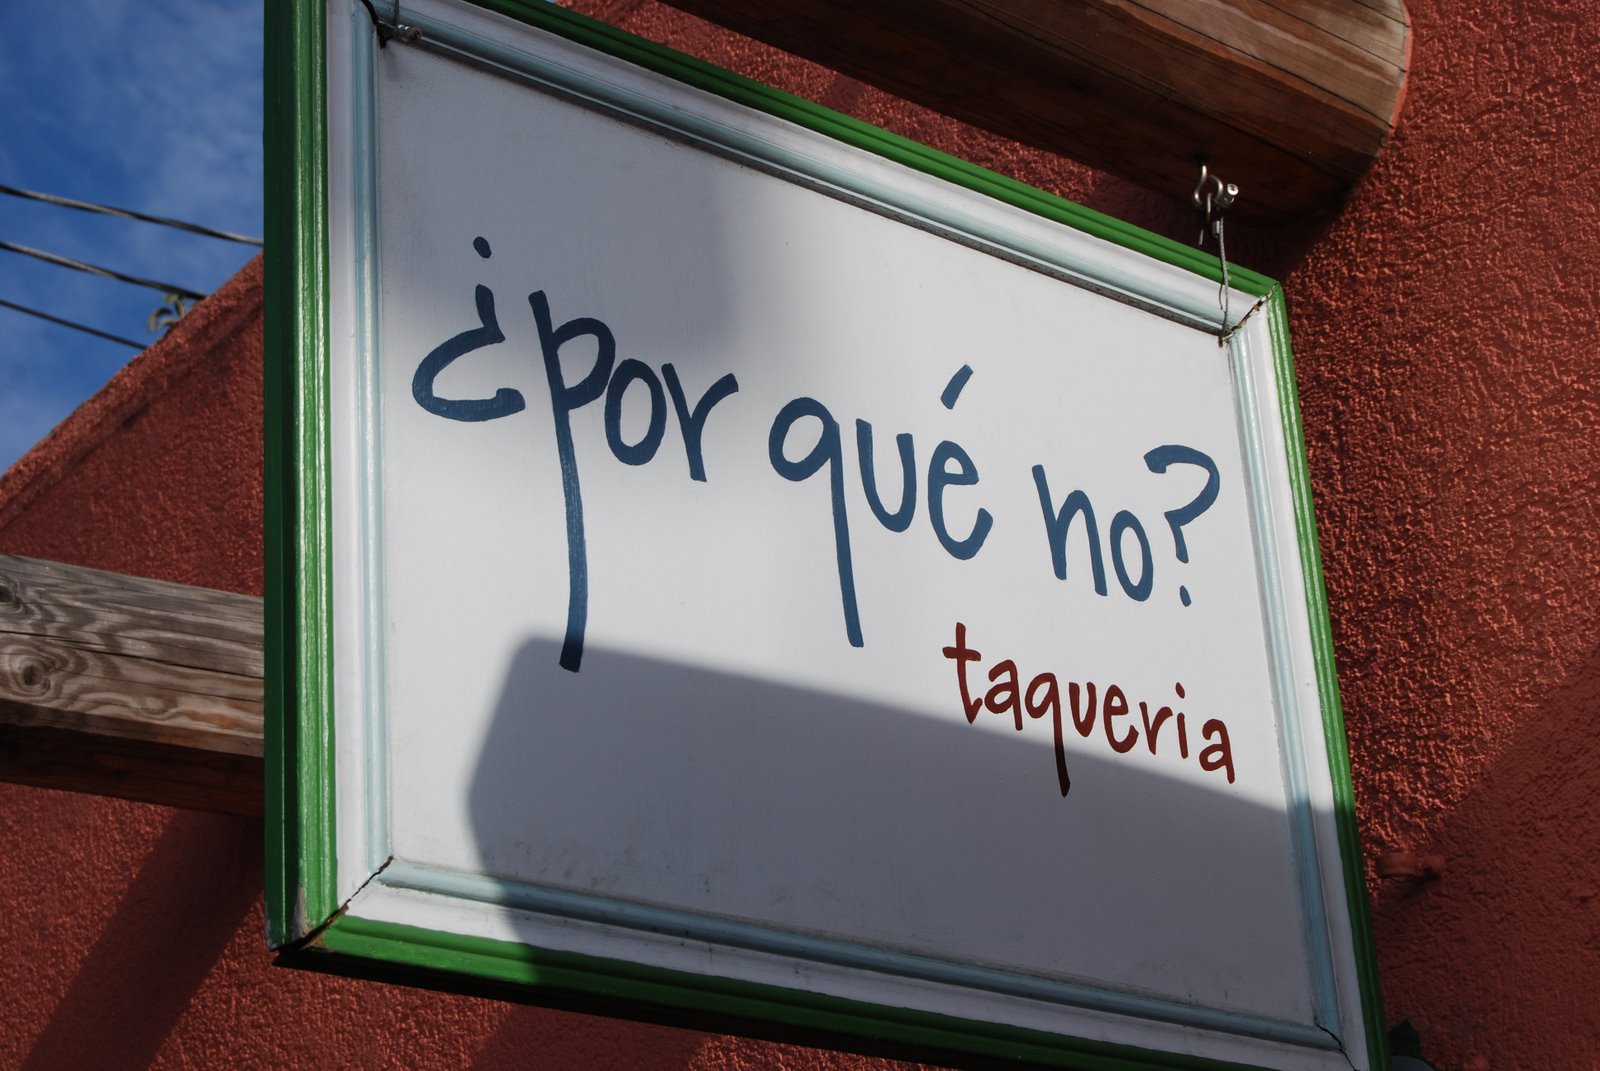 ¿por qué no?
taqueria